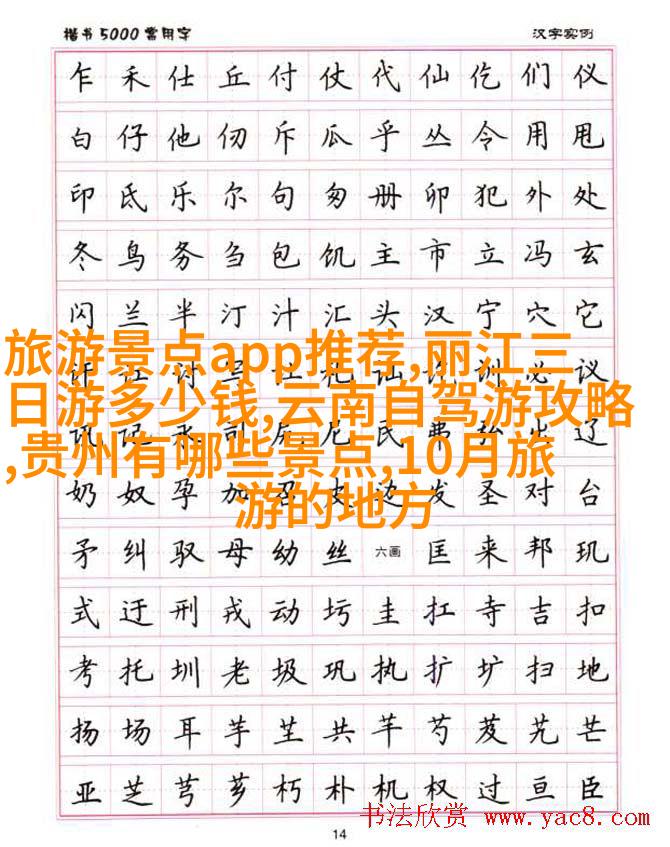 楷书5000常用字
汉字实例
乍禾仕丘付仗代仙仡们仪
白仔他仞斥瓜乎丛令用甩
印氐乐尔句匆册卯犯外处
冬鸟务刍包饥主市立冯玄
闪兰半汀汁汇头汉宁穴它
旅游景点app推荐,丽江三
日游多少钱,云南自驾游攻略
,贵州有哪些景点,10月旅
游的地方
必议
辽
奶奴孕加发圣对台
矛纠驭母幼丝六画匡来邦玑
式迂刑戎动圬圭扛寺吉扣
考托圳老圾巩执扩圹扫地
扬场耳芋芏共芊芍芨艽芒
亚芝芎芗朽朴机权过亘臣
书法欣赏 www.yac8.com
14